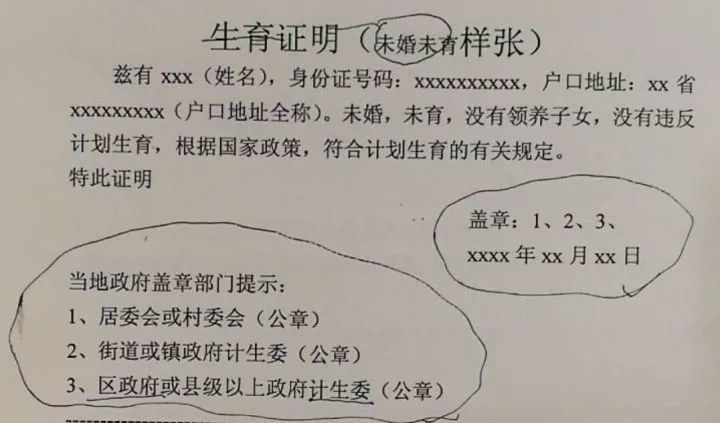 生育证明（未婚未育样张）
兹有 xxx（姓名），身份证号码：xxxxxxxxxx，户口地址：xx 省
xxxxxxxxx（户口地址全称）。未婚，未育，没有领养子女，没有违反
计划生育，根据国家政策，符合计划生育的有关规定。
特此证明
盖章：1、2、3、
xxxx 年 xx 月 xx 日
当地政府盖章部门提示：
1、居委会或村委会（公章）
2、街道或镇政府计生委（公章）
3、区政府或县级以上政府计生委（公章）